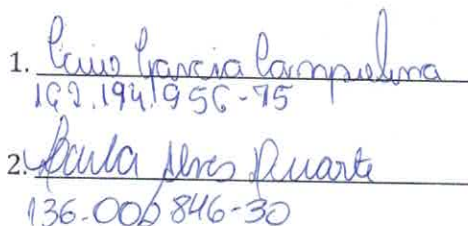 1. Caio Garcia Campolina
162.194.956-75
2. Paula Alves Duarte
136.006 846-30